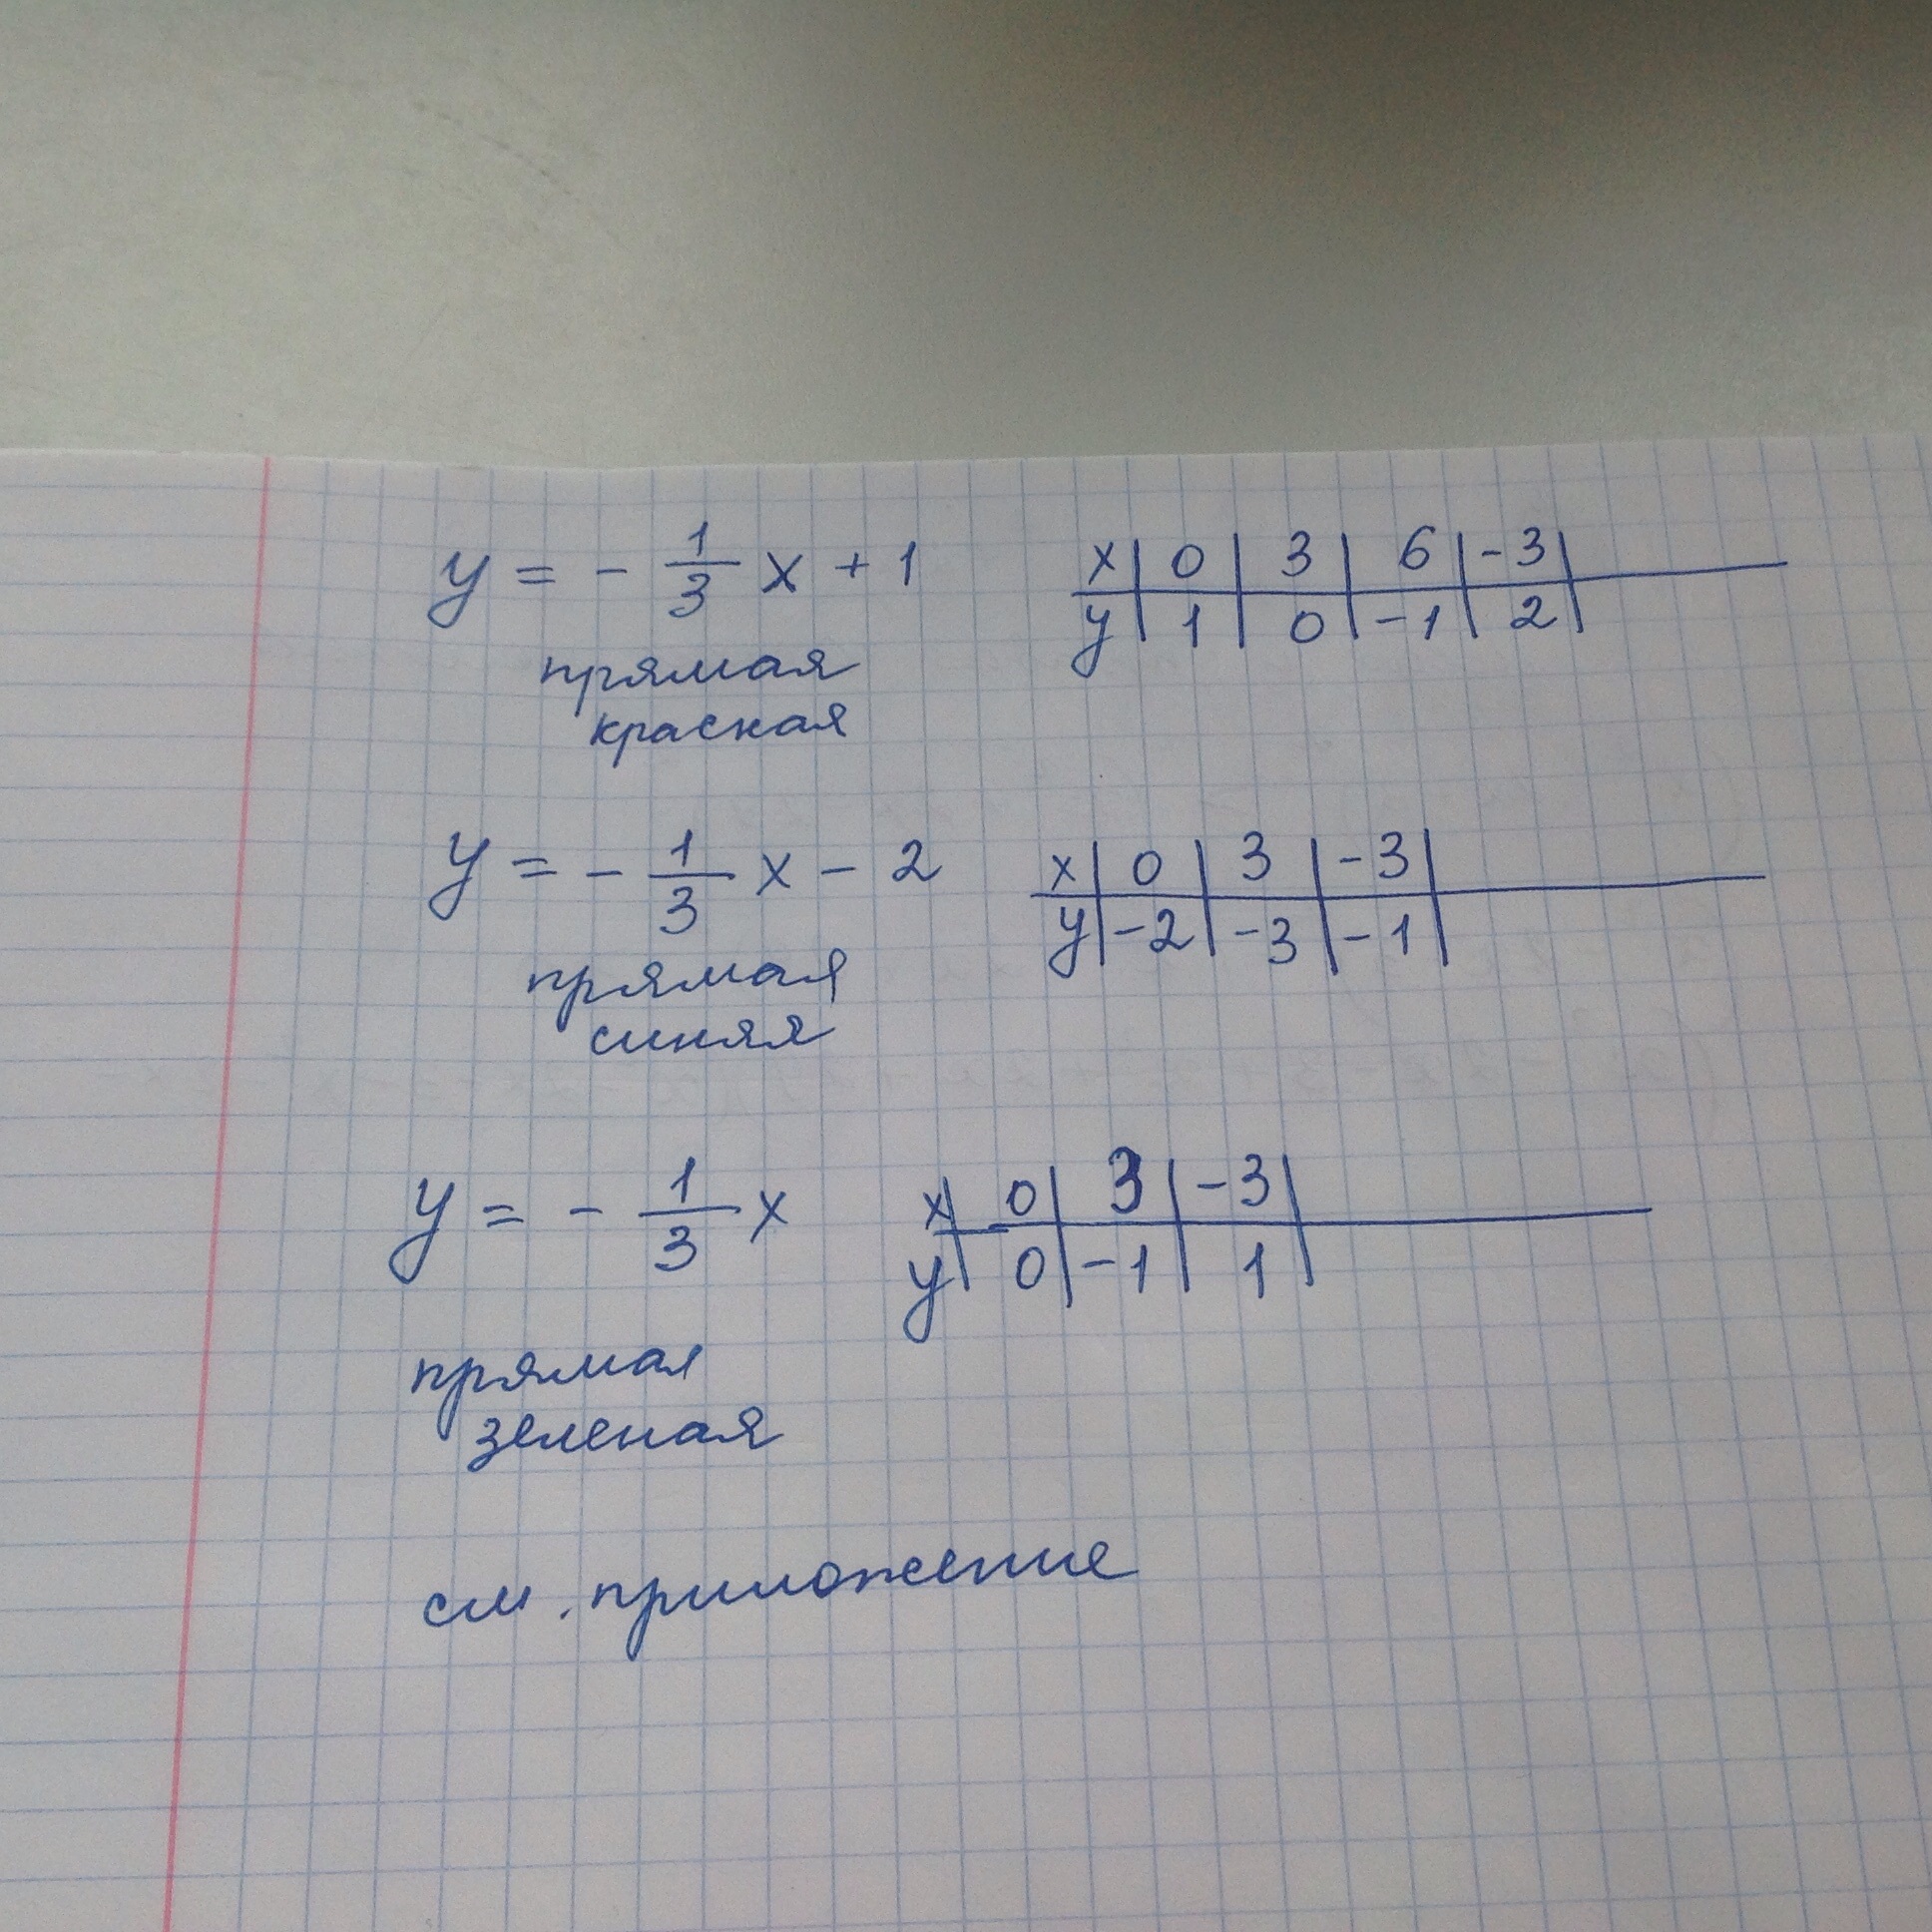 y = - 1/3 x + 1
x | 0 | 3 | 6 | -3 |
y | 1 | 0 | -1 | 2 |
прямая
красная
y = - 1/3 x - 2
x | 0 | 3 | -3 |
y | -2 | -3 | -1 |
прямая
синяя
y = - 1/3 x
x | 0 | 3 | -3 |
y | 0 | -1 | 1 |
прямая
зеленая
см. приложение